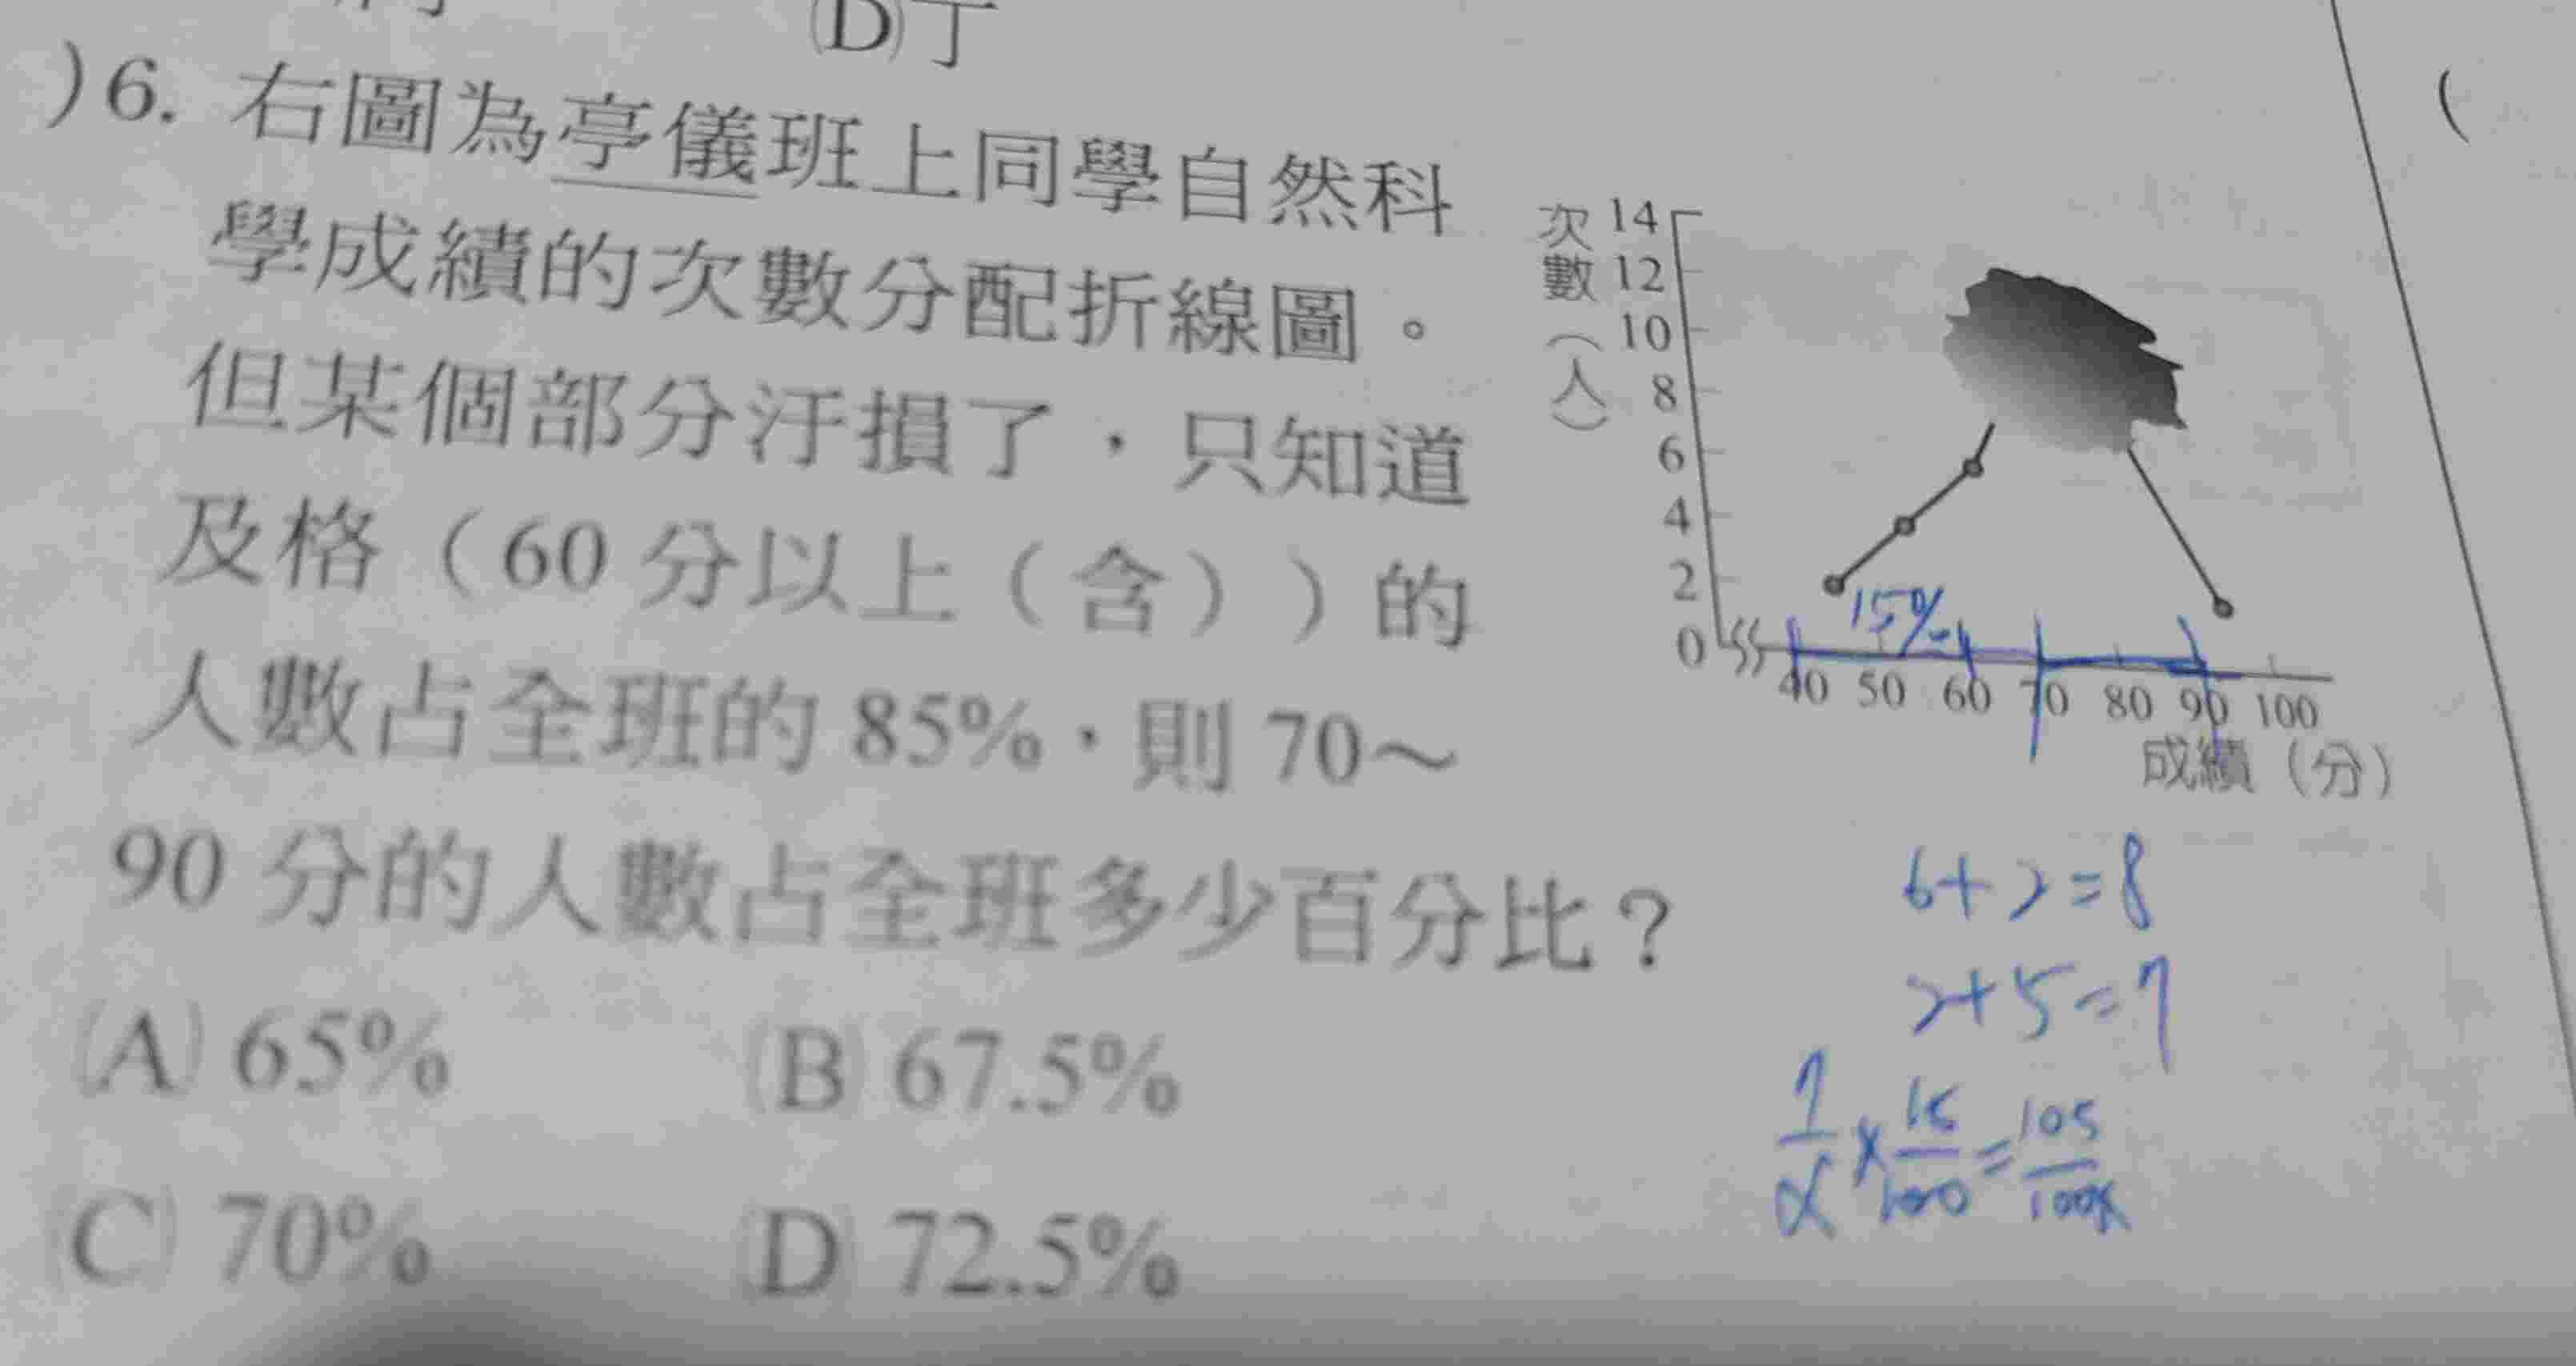 (D)丁
)6. 右圖為亭儀班上同學自然科
學成績的次數分配折線圖。
但某個部分汙損了，只知道
及格（60 分以上（含））的
人數占全班的 85%，則 70～
90 分的人數占全班多少百分比？
(A) 65% (B) 67.5%
(C) 70% (D) 72.5%
次數（人）
14
12
10
8
6
4
2
0
15%
40 50 60 70 80 90 100
成績（分）
6+2=8
2+5=7
7/x × 15/100 = 105/100x
(